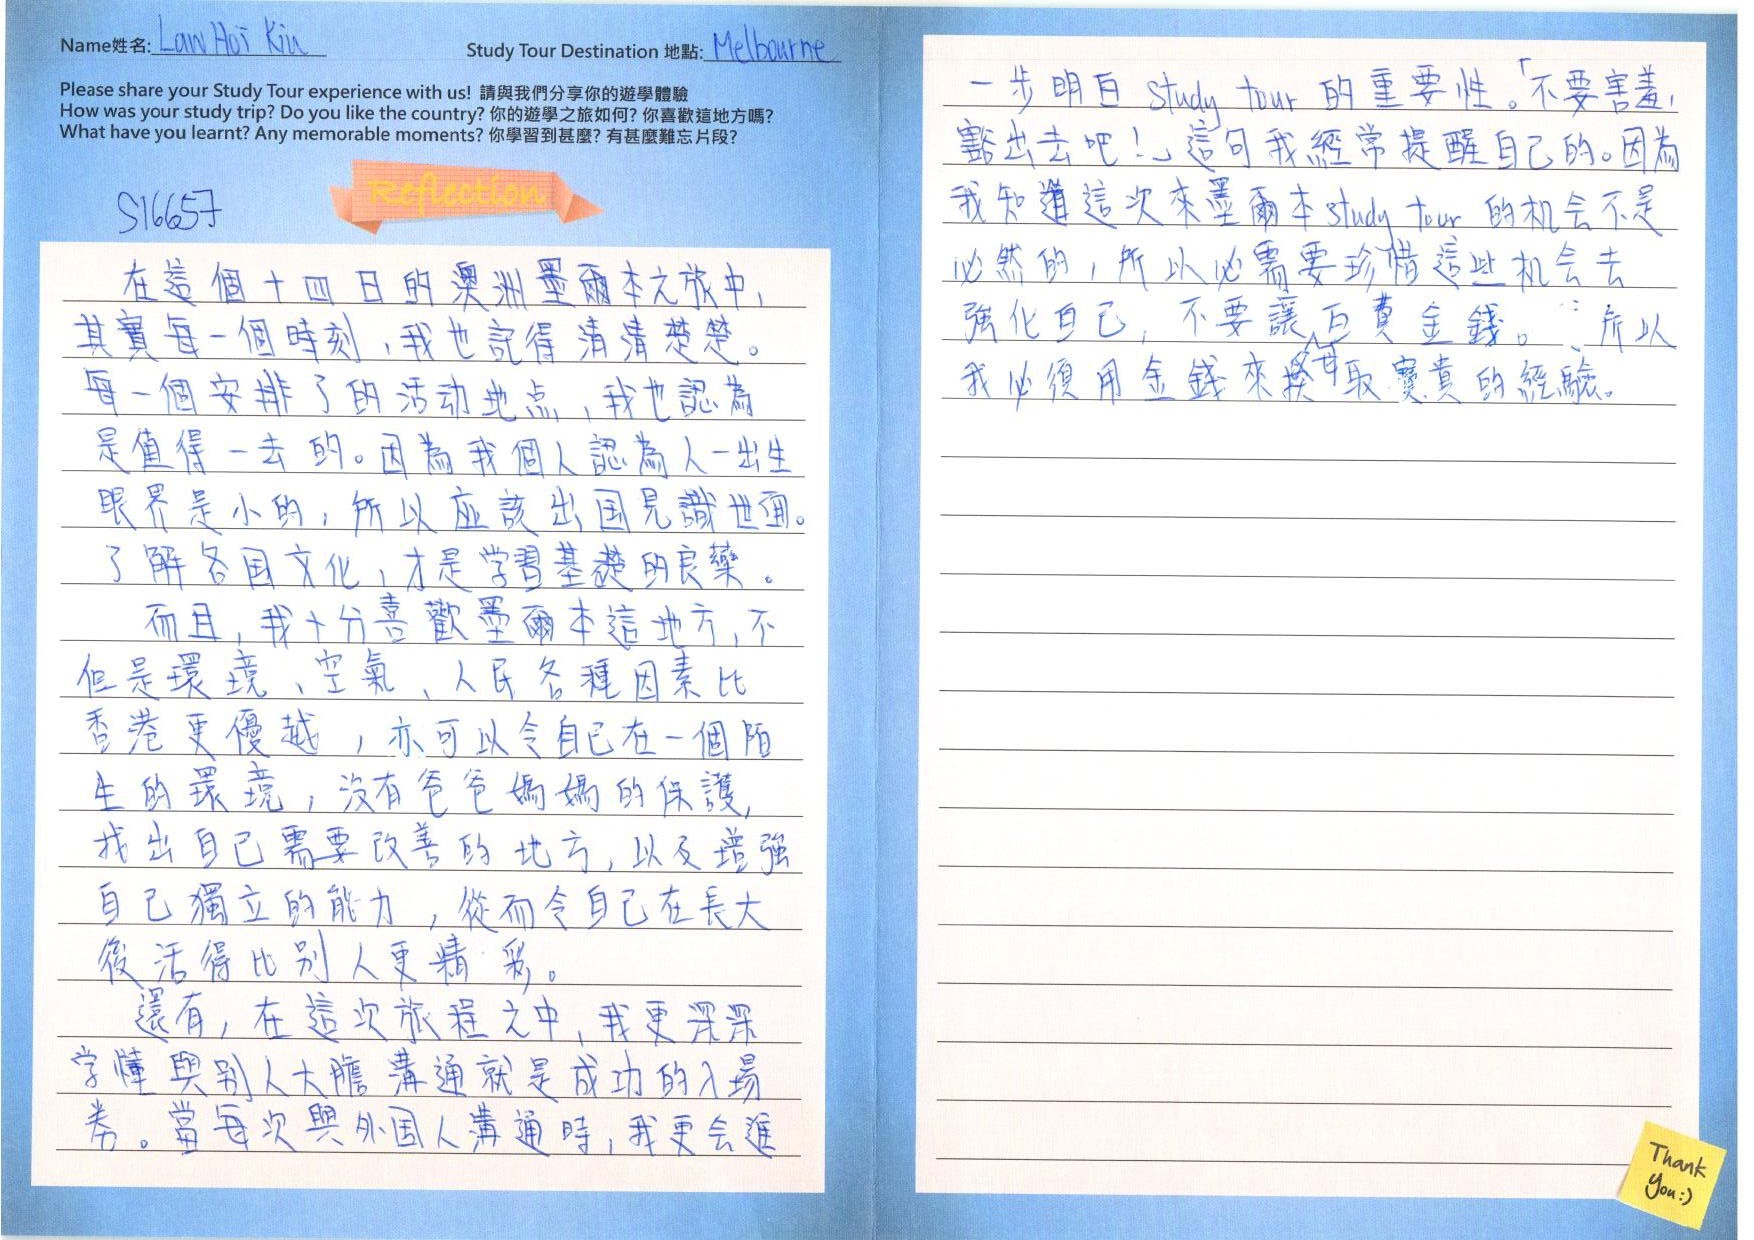 Name姓名: Law Hoi Kiu
Study Tour Destination 地點: Melbourne
Please share your Study Tour experience with us! 請與我們分享你的遊學體驗
How was your study trip? Do you like the country? 你的遊學之旅如何? 你喜歡這地方嗎?
What have you learnt? Any memorable moments? 你學習到甚麼? 有甚麼難忘片段?
Reflection
S16657
在這個十四日的澳洲墨爾本之旅中,
其實每一個時刻,我也記得清清楚楚。
每一個安排了的活动地点,我也認為
是值得一去的。因為我個人認為人一出生
眼界是小的,所以应該出国見識世面。
了解各国文化,才是学習基礎的良藥。
而且,我十分喜歡墨爾本這地方,不
但是環境、空氣、人民各種因素比
香港更優越,亦可以令自己在一個陌
生的環境,沒有爸爸媽媽的保護,
找出自己需要改善的地方,以及增強
自己獨立的能力,從而令自己在長大
後活得比别人更精彩。
還有,在這次旅程之中,我更深深
学懂與别人大膽溝通就是成功的入場
券。當每次與外国人溝通時,我更会進
一步明白 study tour 的重要性。「不要害羞,
豁出去吧!」這句我經常提醒自己的。因為
我知道這次來墨爾本study tour 的机会不是
必然的,所以必需要珍惜這些机会去
強化自己,不要讓白費金錢。所以
我必須用金錢來換取寶貴的經驗。
Thank
you:)